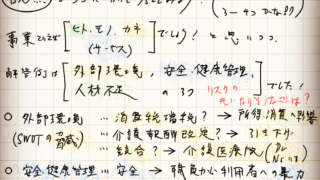 (3〜4つかな似)
事業といえば [ヒト、モノ、カネ (サービス)] でしょ! と思いつつ、
解答例は [外部環境, 安全, 健康管理, 人材不足 の3つ] でした!
リスクの
○ 外部環境 … 消費税増税? → 所得、消費への影響
(SWOTの脅威) … 介護報酬改定? → 引き下げ
… 統合? → 介護医療院
○ 安全、健康管理 … 安全 → 職員から利用者への暴力